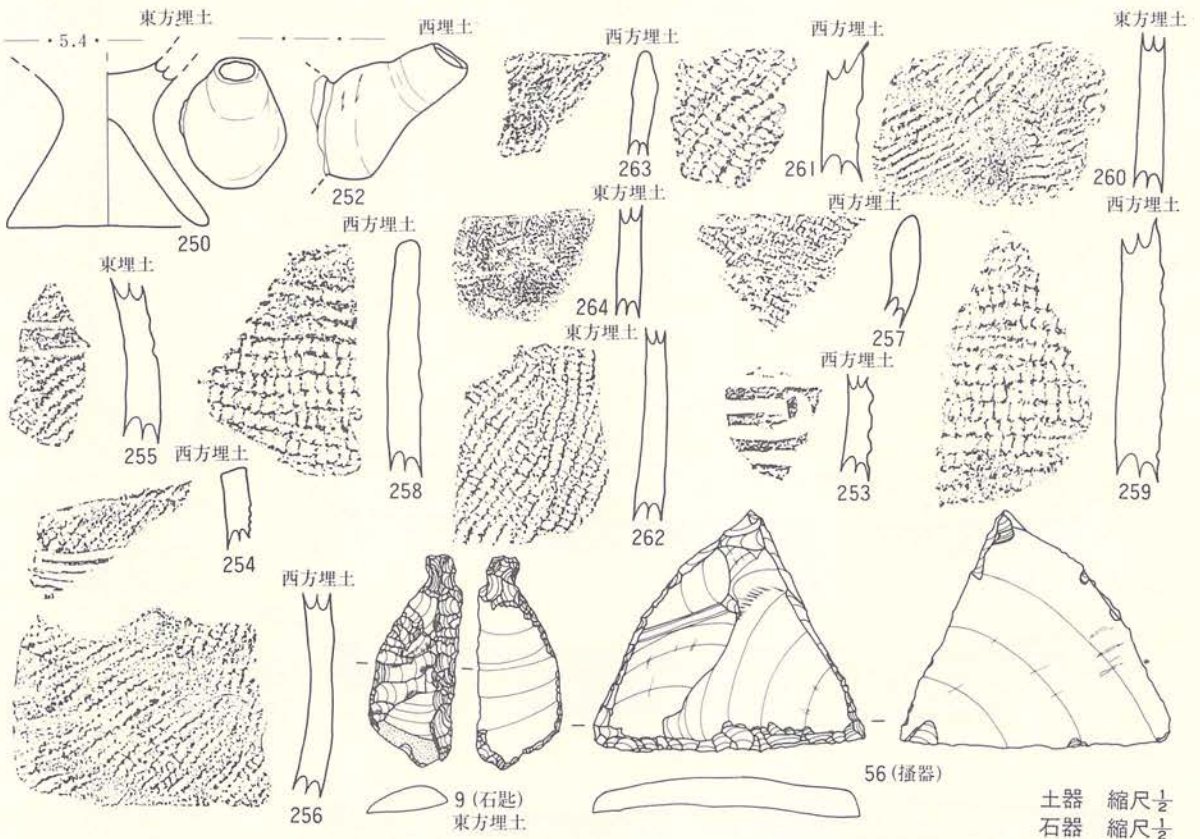 東方埋土
・5.4・
250
西埋土
252
西方埋土
263
西方埋土
261
東方埋土
260
東埋土
255
西方埋土
258
東方埋土
264
西方埋土
257
西方埋土
259
東方埋土
262
西方埋土
253
西方埋土
254
西方埋土
256
9 (石匙)
東方埋土
56 (掻器)
土器 縮尺1/2
石器 縮尺1/2